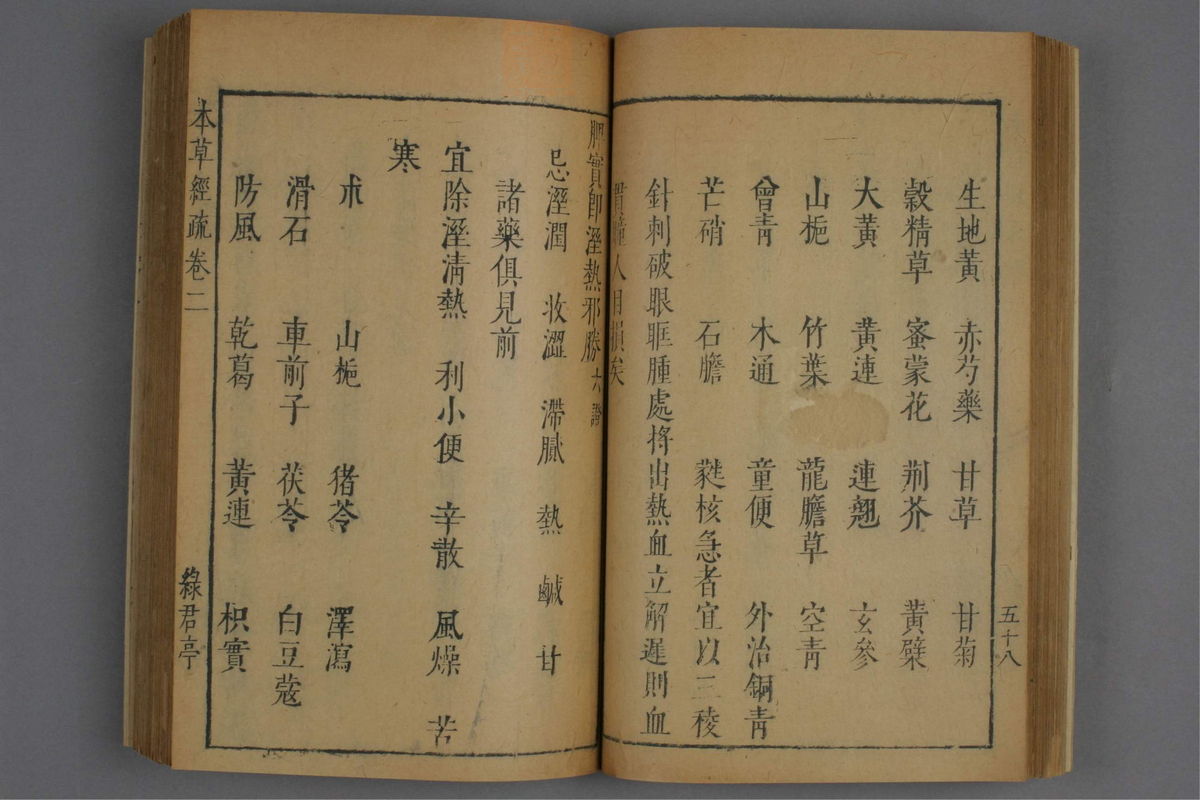 五十八
生地黃 赤芍藥 甘草 甘菊
穀精草 蜜蒙花 荆芥 黃檗
大黃 黃連 連翹 玄參
山梔 竹葉 龍膽草 空青
曾青 木通 童便 外治銅青
芒硝 石膽 蕤核急者宜以三稜
針刺破眼眶腫處將出熱血立解遲則血
貫瞳人目損矣
脾實即溼熱邪勝六證
忌溼潤 收澀 滯膩 熱 鹹 甘
諸藥俱見前
宜除溼淸熱 利小便 辛散 風燥 苦
寒
朮 山梔 猪苓 澤瀉
滑石 車前子 茯苓 白豆蔻
防風 乾葛 黃連 枳實
本草經疏卷二
綠君亭